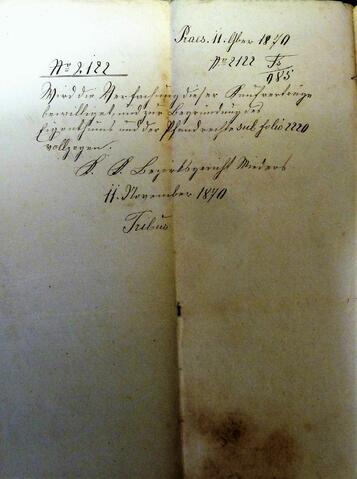 Praes. 11. 9ber 1870
No 2122
No 2122 Fs/985
Wird die Verfachung dieser Kaufverträge
bewilliget, und zur Begründung des
Eigenthums und der Pfandrechte sub folio 2220
vollzogen.
K. K. Bezirksgericht Mieders
11. November 1870
Tribus